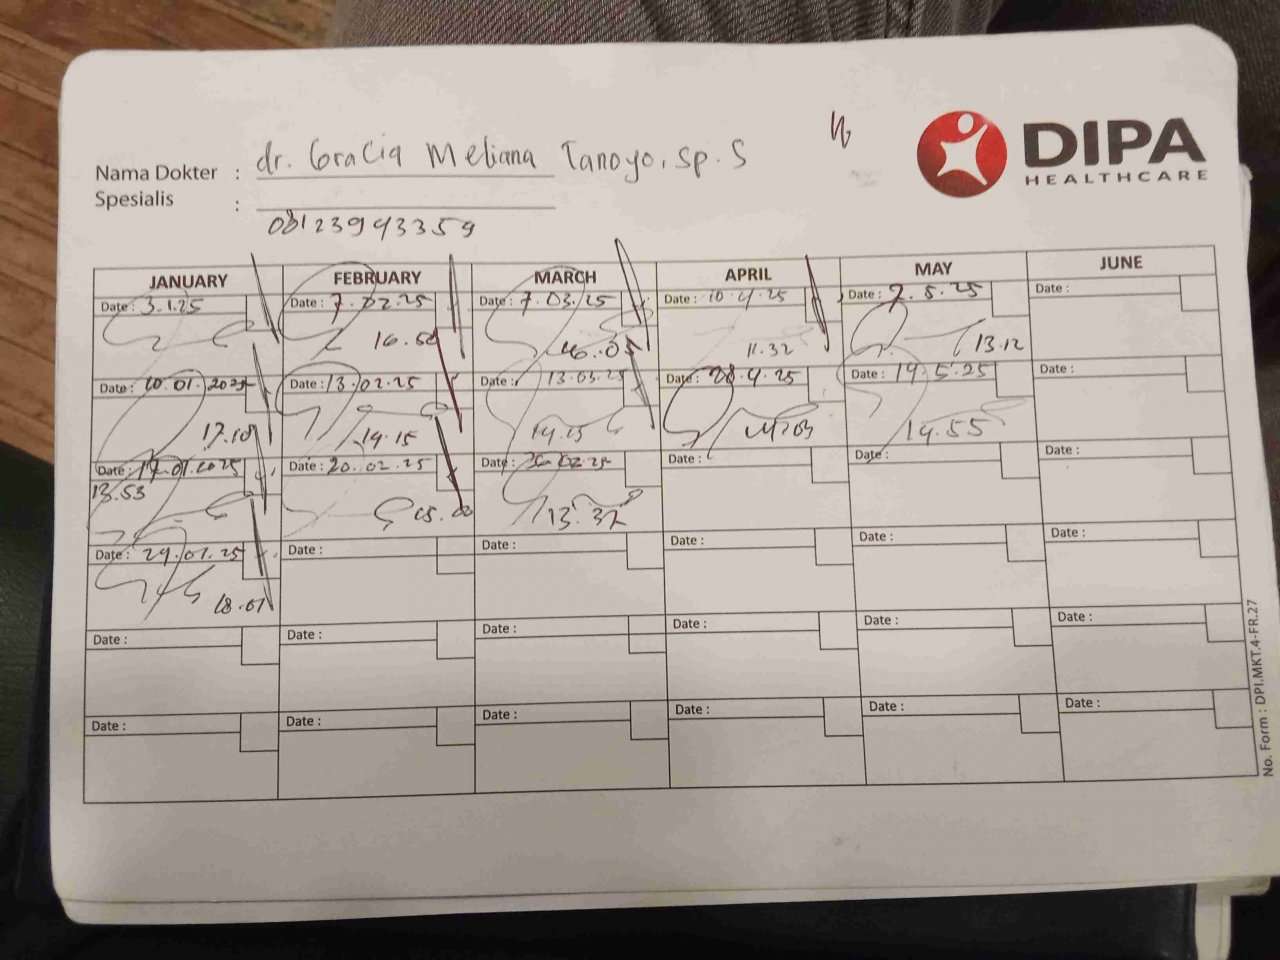 DIPA
HEALTHCARE
Nama Dokter : dr. Gracia Meliana Tanoyo, Sp. S
Spesialis :
08123943359
JANUARY FEBRUARY MARCH APRIL MAY JUNE
Date : 3.1.25 Date : 7.02.25 Date : 7.03.25 Date : 10.4.25 Date : 2.5.25 Date :
16.50 16.05 11.32 13.12
Date : 10.01.2025 Date : 13.02.25 Date : 13.03.25 Date : 28.4.25 Date : 19.5.25 Date :
17.10 19.15 19.15 14.55
Date : 17.01.2025 Date : 20.02.25 Date : Date : Date : Date :
13.53 15.00 13.37
Date : 29.01.25 Date : Date : Date : Date : Date :
18.01
Date : Date : Date : Date : Date : Date :
Date : Date : Date : Date : Date : Date :
No. Form : DPI.MKT.4-FR.27